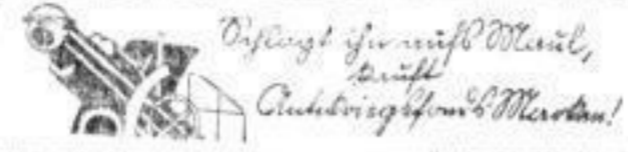 Schlagt ihn aufs Maul,
kauft
Antikriegsfonds Marken!